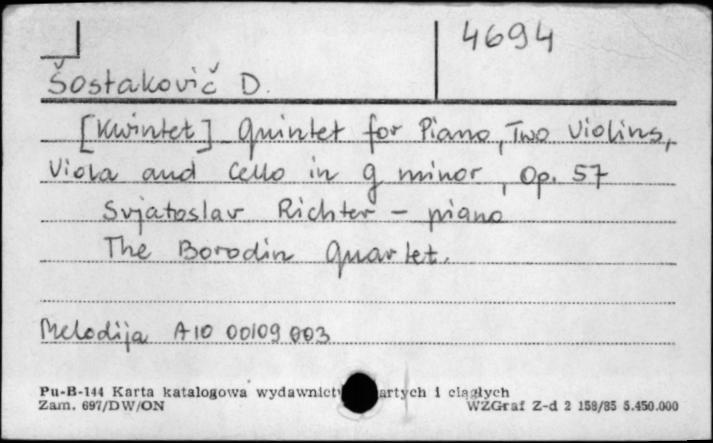 4694
Šostakovič D.
[Kwintet] Quintet for Piano, Two Violins,
Viola and Cello in g minor, Op. 57
Svjatoslav Richter - piano
The Borodin Quartet.
Melodija A10 00109 003
Pu-B-144 Karta katalogowa wydawnict artych i ciągłych
Zam. 697/DW/ON WZGraf Z-d 2 158/85 5.450.000